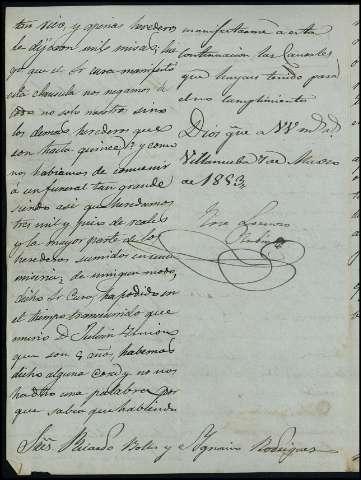 tan rico, y apenas heredero
le dijeron mil misas; lue
go que el Sr Cura manifestó
esta clausula nos negamos
todo no solo nosotros sino
los demas herederos que
son hasta quince, y como
nos habiamos de convenir
á un funeral tan grande
siendo asi que heredamos
tres mil y pico de reales
y la mayor parte de los
herederos sumidos en una
miseria; de ningun modo,
dicho Sr Cura, ha podido en
el tiempo transcurrido que
murio D. Julian
que son 8 año, habernos
dicho alguna cosa y no nos
ha dicho una palabra por
que sabia que habiendo
manifestarme á esta
continuacion las causales
que hayan tenido para
el no cumplimiento
Dios gue á VV ms as.
Villanueba 7 de Marzo
de 1883
José Lorenzo
Sres. Ricardo Boles y Ygnacio Rodrigues